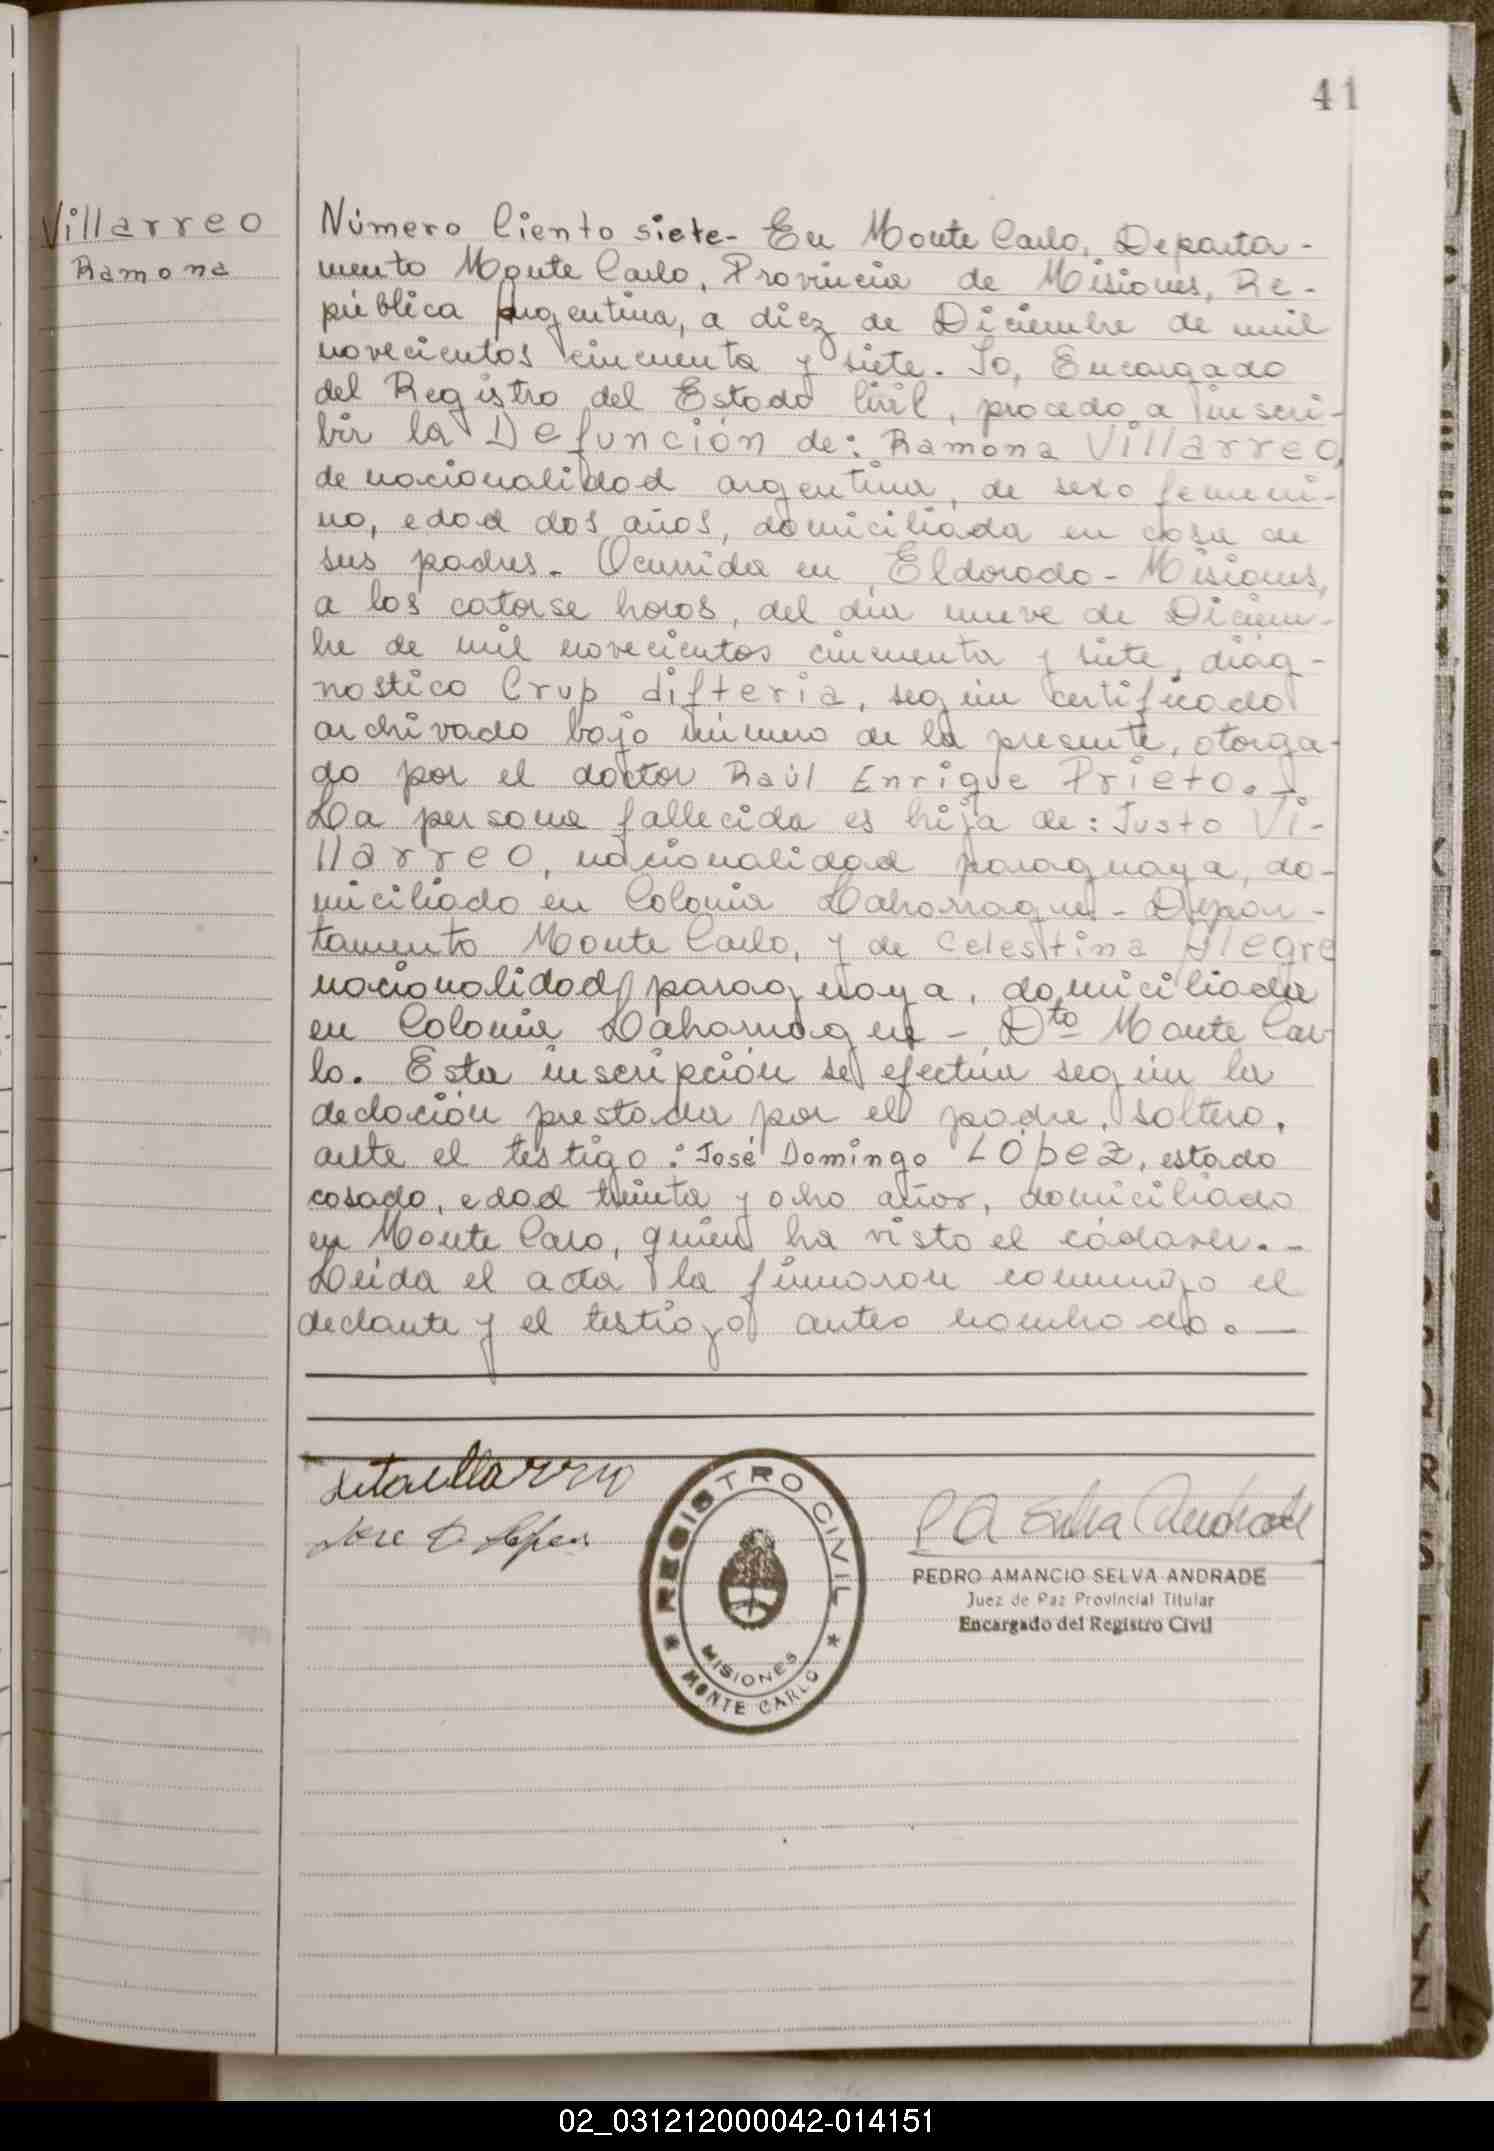 41
Villarreo
Ramona
Número Ciento siete- En Monte Carlo, Departa-
mento Monte Carlo, Provincia de Misiones, Re-
pública Argentina, a diez de Diciembre de mil
novecientos cincuenta y siete. Yo, Encargado
del Registro del Estado Civil, procedo a inscri-
bir la Defunción de: Ramona Villarreo,
de nacionalidad argentina, de sexo femeni-
no, edad dos años, domiciliada en casa de
sus padres. Ocurrida en Eldorado - Misiones,
a los catorse horas, del dia nueve de Diciem-
bre de mil novecientos cincuenta y siete, diag-
nostico Crup difteria, según certificado
archivado bajo número de la presente, otorga-
do por el doctor Raúl Enrique Prieto.-
La persona fallecida es hija de: Justo Vi-
llarreo, nacionalidad paraguaya, do-
miciliado en Colonia Laharrague - Depar-
tamento Monte Carlo, y de Celestina Alegre
nacionalidad paraguaya, domiciliada
en Colonia - Dto Monte Car-
lo. Esta inscripción se efectúa según la
declación prestada por el padre, soltero,
ante el testigo: José Domingo López, estado
casado, edad treinta y oho años, domiciliado
en Monte Caro, quien ha visto el cádaver.-
Leida el acta la firmaron conmigo el
declante y el testigo antes nombrado.-
Jose D. Lopez
REGISTRO CIVIL
MISIONES
MONTE CARLO
P A Selva Andrade
PEDRO AMANCIO SELVA ANDRADE
Juez de Paz Provincial Titular
Encargado del Registro Civil
02_031212000042-014151